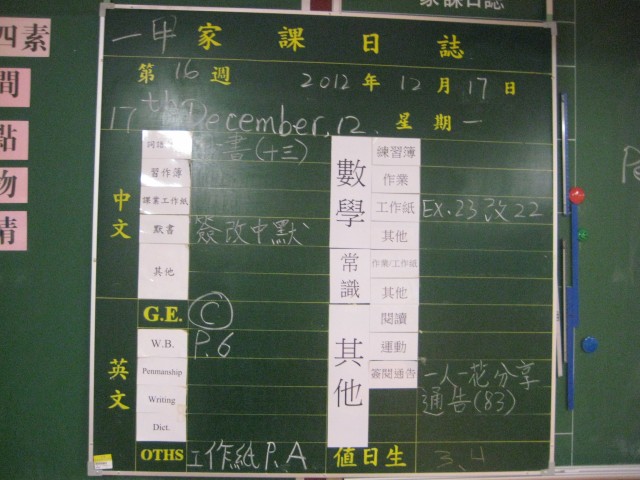 家課日誌
四素
間
點
物
情
一甲 家課日誌
第16週 2012年12月17日
17th December, 12. 星期一
中文
書(十三)
習作簿
課業工作紙
默書 簽改中默
其他
英文
G.E. C
W.B. P.6
Penmanship
Writing
Dict.
OTHS 工作紙 P.A
數學
練習簿
作業
工作紙 EX.23改22
其他
常識
作業/工作紙
其他
其他
閱讀
運動
簽閱通告 一人一花分享
通告(83)
值日生 3、4